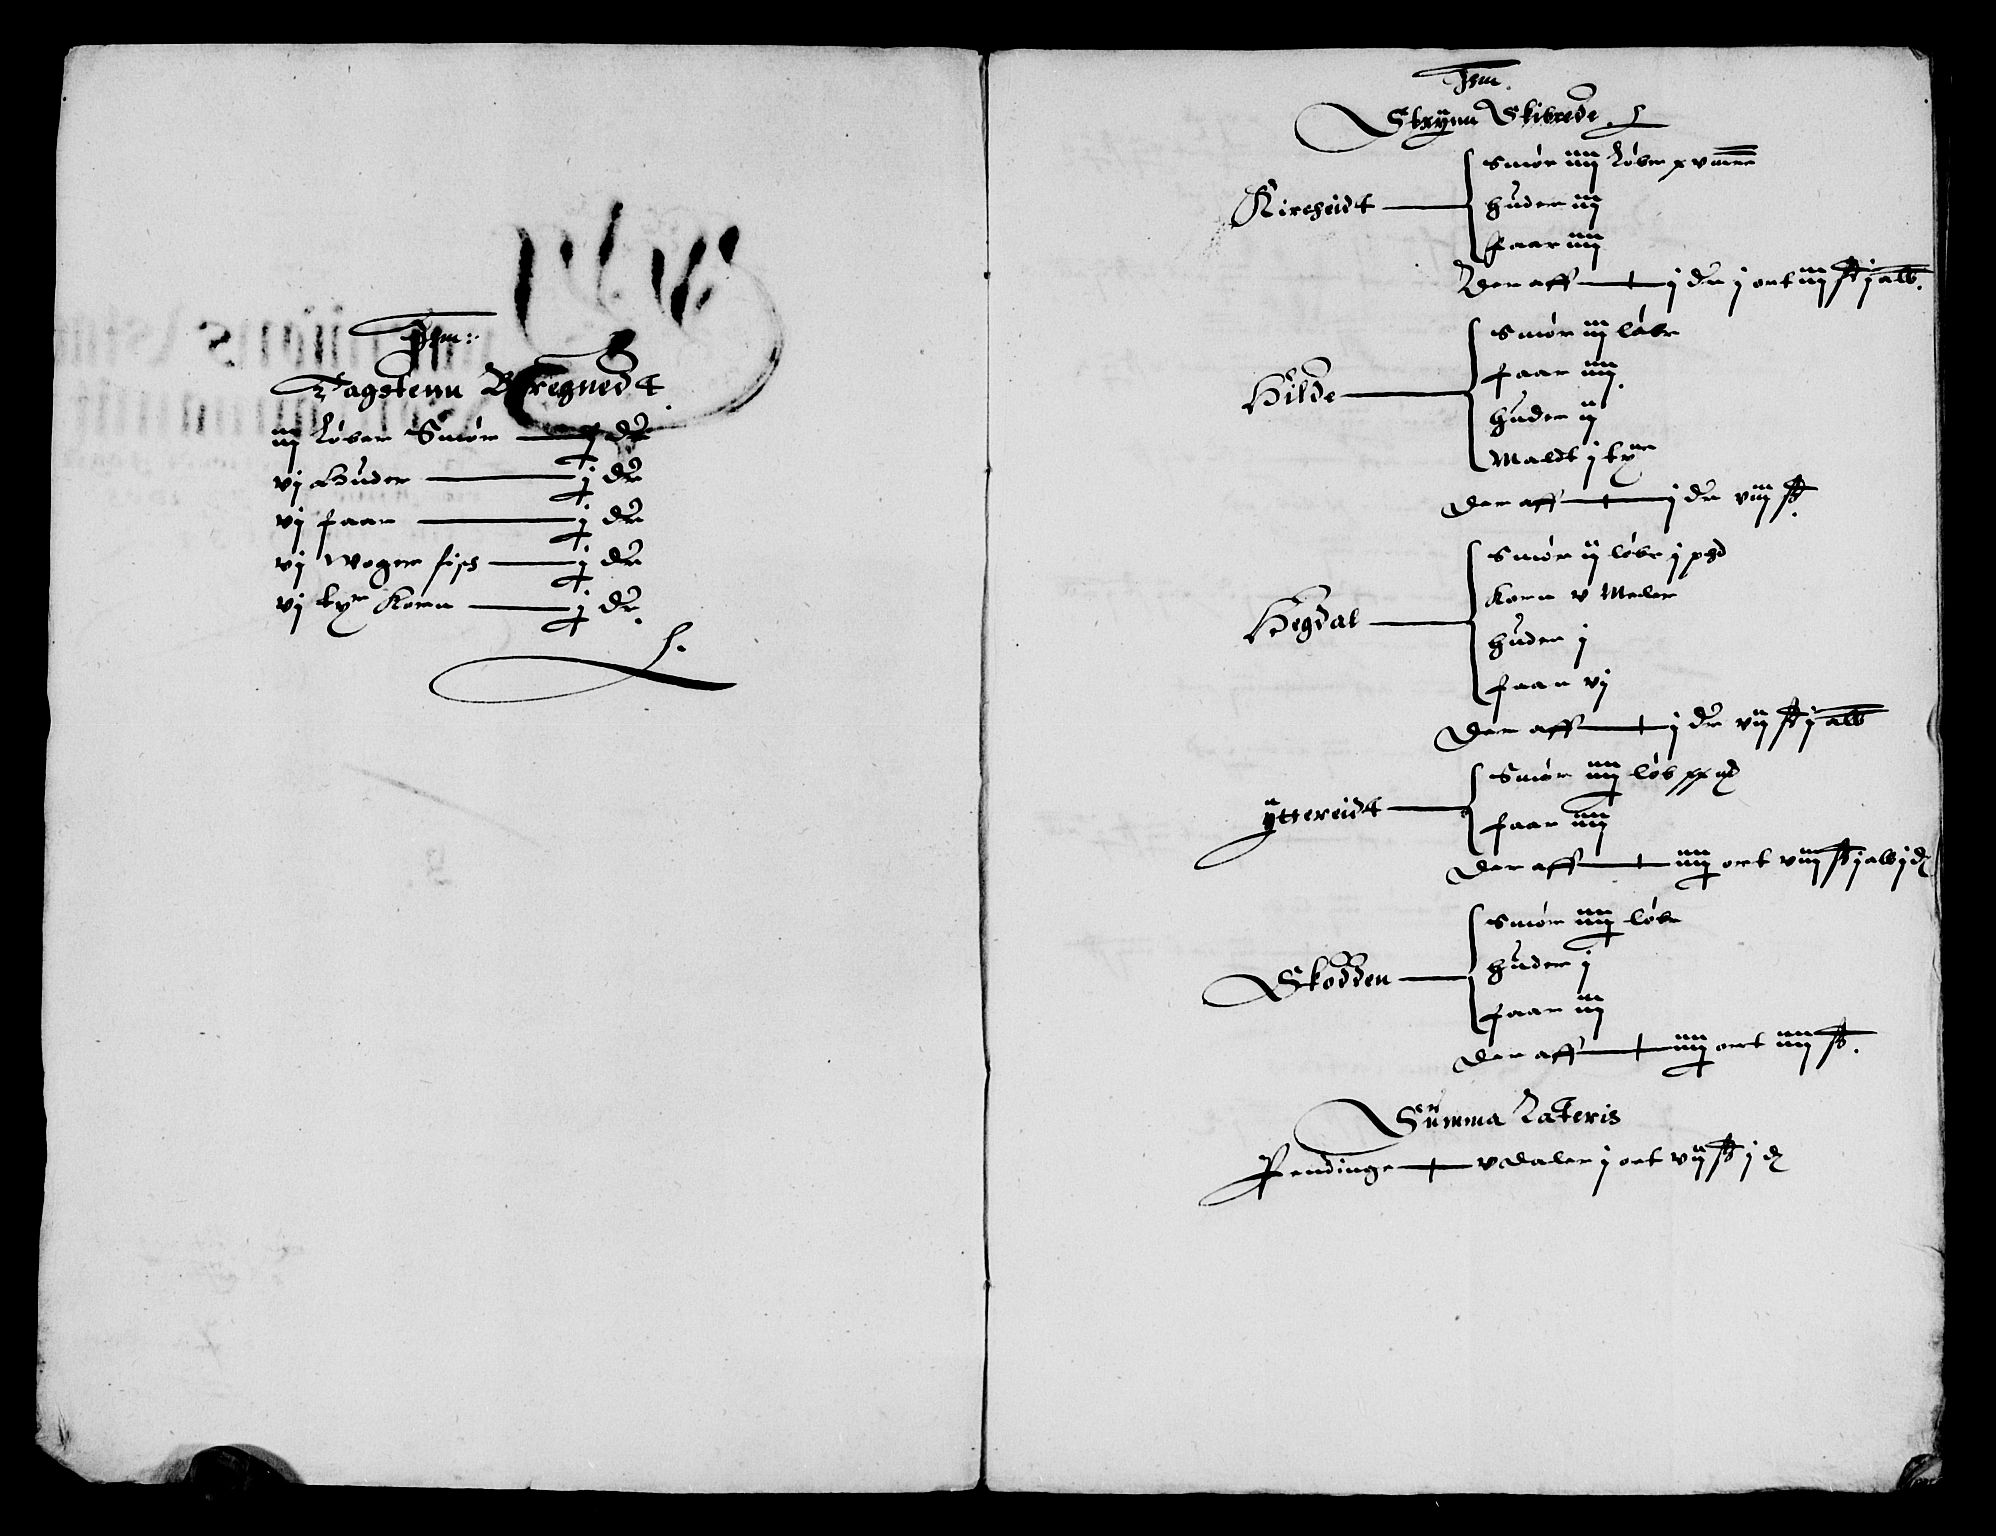 Jhm:
Tagstenn Beregnedt
iij Løber Smør — j dr
vj Huder — j dr
vj faar — j dr
vj Woger fisch — j dr
vj tyr Korn — j dr
Jhm.
Strÿnn Skibrede
Kircheidt — Smør iiij Løber x v mrc
huder iij
faar iiij
Der aff — j dr j ort iiij ß j alb.
Hilde — Smør iij løbr
faar iiij
huder ij
Maldt j tyr
Der aff — j dr viij ß
Hegdal — Smør ij løbr j pd
Korn v Meler
huder j
faar vj
Der aff — j dr vij ß j alb
ÿttereidt — Smør iiij løb
faar iiij
Der aff — iiij ort viij ß j alb j d
Skodden — Smør iiij løbr
huder j
faar iij
Der aff — iiij ort iiij ß.
Summa Lateris
Pendinge — v daler j ort vij ß j d